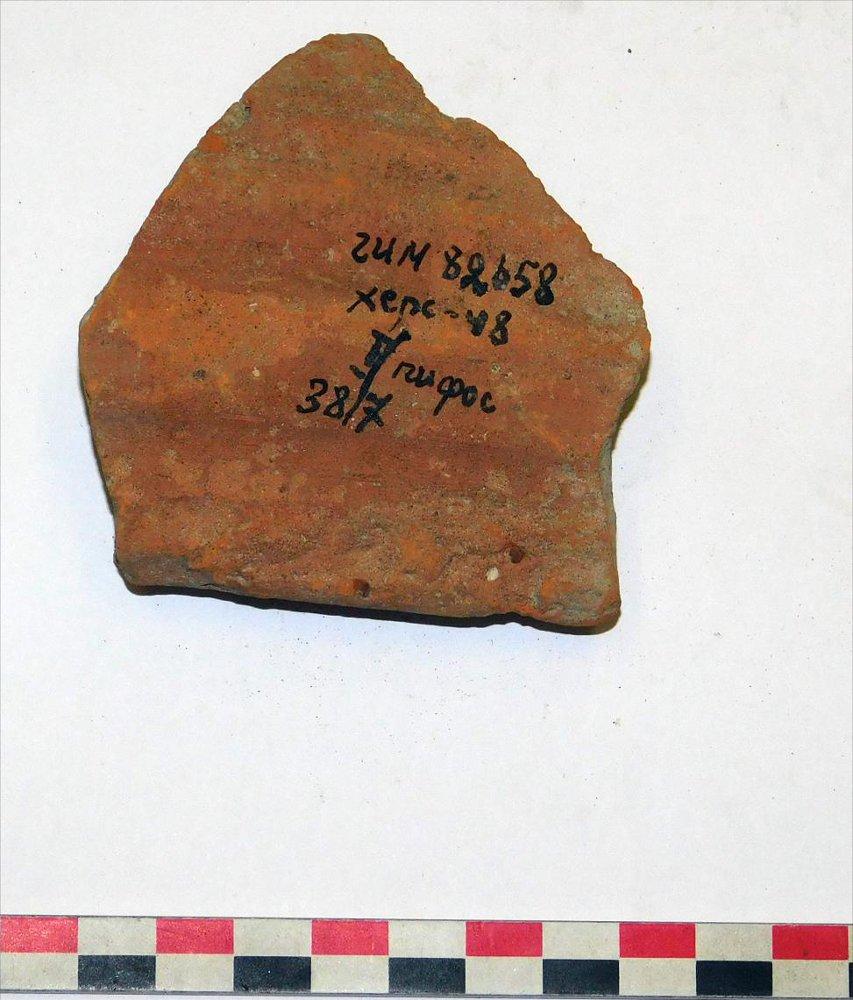 гим 82658
херс-48
пифос
38/7